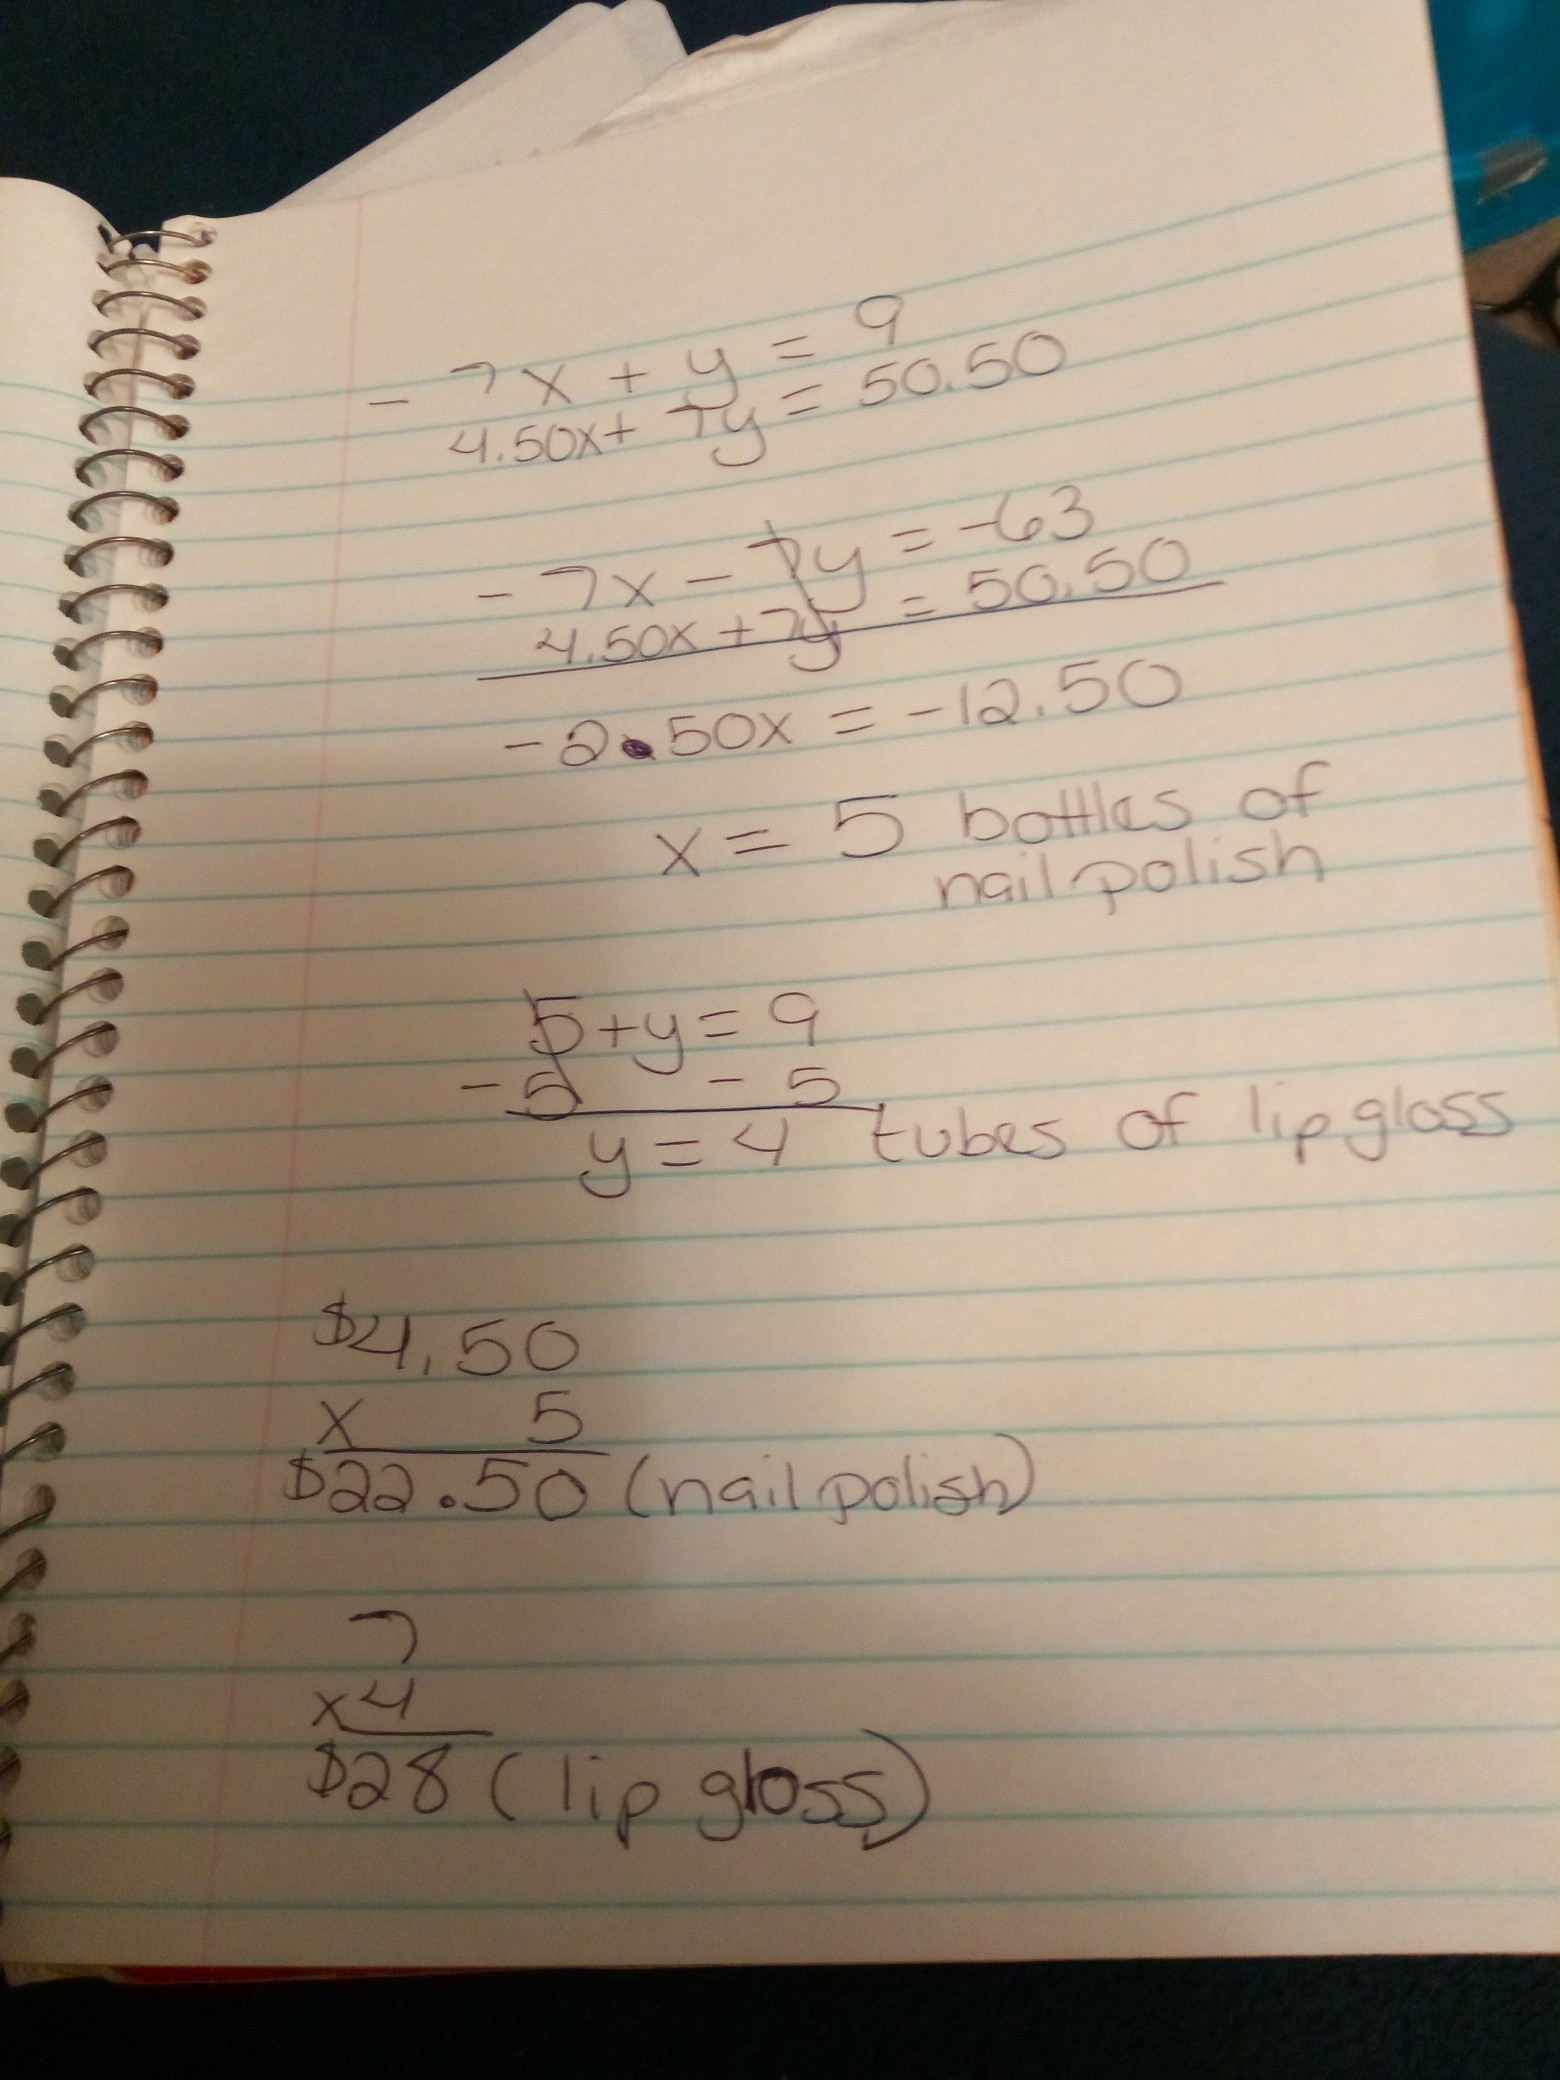 - 7x + y = 9
4.50x + 7y = 50.50
- 7x - 7y = -63
4.50x + 7y = 50.50
- 2.50x = -12.50
x = 5 bottles of
nail polish
5 + y = 9
- 5 - 5
y = 4 tubes of lip gloss
$4.50
x 5
$22.50 (nail polish)
7
x4
$28 (lip gloss)